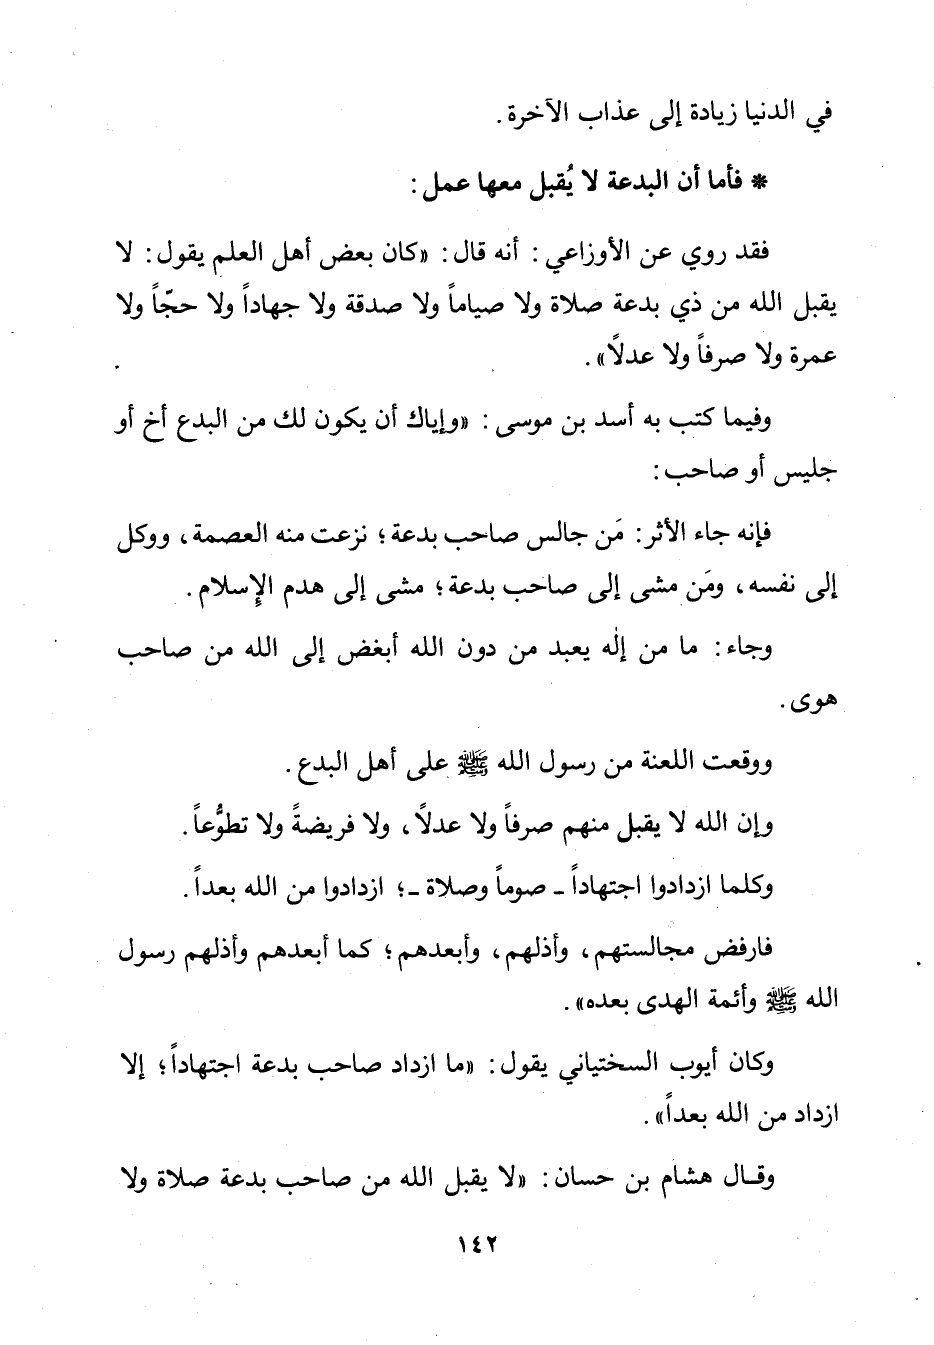 في الدنيا زيادة إلى عذاب الآخرة.
* فأما أن البدعة لا يُقبل معها عمل:
فقد روي عن الأوزاعي: أنه قال: «كان بعض أهل العلم يقول: لا
يقبل الله من ذي بدعة صلاة ولا صياماً ولا صدقة ولا جهاداً ولا حجّاً ولا
عمرة ولا صرفاً ولا عدلاً».
وفيما كتب به أسد بن موسى: «وإياك أن يكون لك من البدع أخ أو
جليس أو صاحب:
فإنه جاء الأثر: مَن جالس صاحب بدعة؛ نزعت منه العصمة، ووكل
إلى نفسه، ومَن مشى إلى صاحب بدعة؛ مشى إلى هدم الإِسلام.
وجاء: ما من إلٰه يعبد من دون الله أبغض إلى الله من صاحب
هوى.
ووقعت اللعنة من رسول الله ﷺ على أهل البدع.
وإن الله لا يقبل منهم صرفاً ولا عدلاً، ولا فريضةً ولا تطوُّعاً.
وكلما ازدادوا اجتهاداً ـ صوماً وصلاة ـ؛ ازدادوا من الله بعداً.
فارفض مجالستهم، وأذلهم، وأبعدهم؛ كما أبعدهم وأذلهم رسول
الله ﷺ وأئمة الهدى بعده».
وكان أيوب السختياني يقول: «ما ازداد صاحب بدعة اجتهاداً؛ إلا
ازداد من الله بعداً».
وقال هشام بن حسان: «لا يقبل الله من صاحب بدعة صلاة ولا
١٤٢